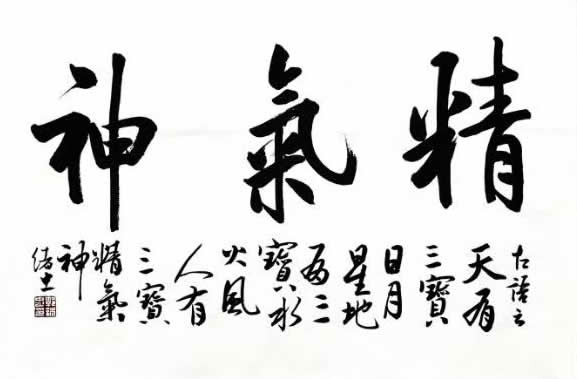 精氣神
古語云
天有
三寶
日月
星地
有三
寶水
火風
人有
三寶
精氣
神